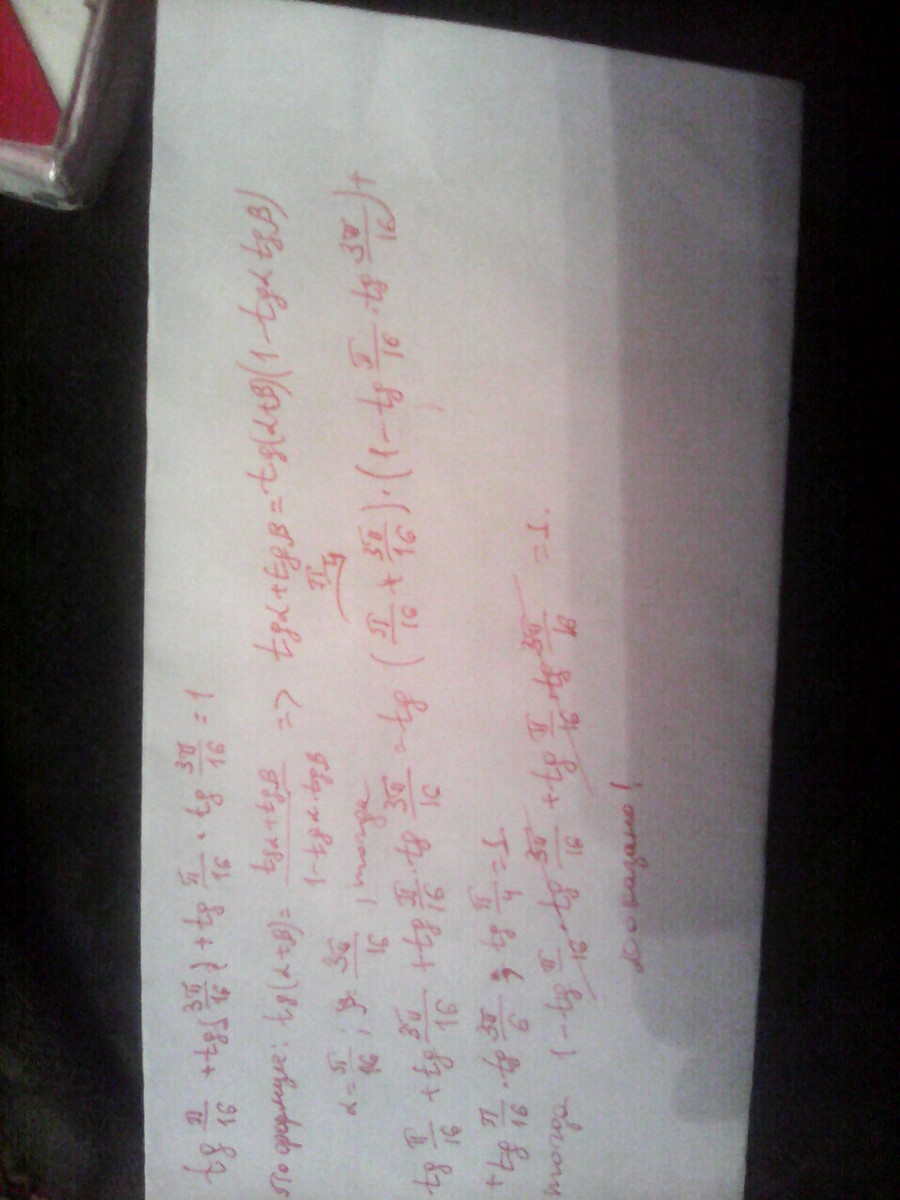 tg π/16 + tg(3π/16) + tg π/16 · tg 3π/16 = 1
По формуле: tg(α+β) = (tgα+tgβ)/(1-tgα·tgβ) => tgα+tgβ = tg(α+β)(1-tgα tgβ)
α = π/16; β = 3π/16, тогда π/4
tg π/16 + tg 3π/16 + tg π/16 · tg 3π/16 = tg (π/16 + 3π/16) · (1 - tg π/16 · tg 3π/16) +
+ tg π/16 · tg 3π/16; tg π/4 = 1
тогда 1 - tg π/16 · tg 3π/16 + tg π/16 · tg 3π/16 = 1.
доказано!